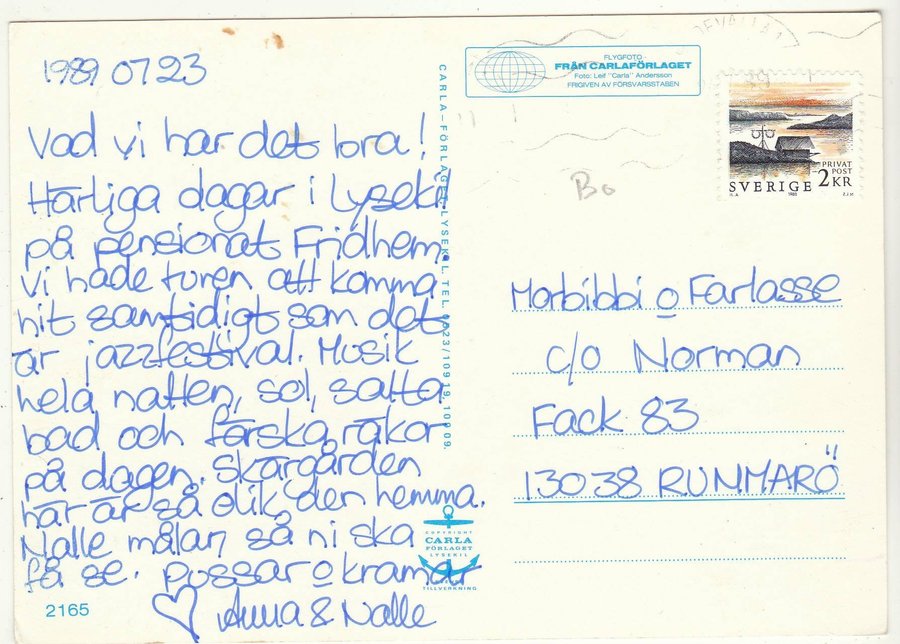 1989 07 23
Vad vi har det bra!
Härliga dagar i Lysekil
på pensionat Fridhem.
Vi hade turen att komma
hit samtidigt som det
är jazzfestival. Musik
hela natten, sol, salta
bad och färska räkor
på dagen. Skärgården
här är så olik den hemma.
Nalle målar, så ni ska
få se. Pussar o kramar
Anna & Nalle
2165
CARLA-FÖRLAGET LYSEKIL. TEL. 0523/109 19, 109 09.
COPYRIGHT
CARLA
FÖRLAGET
LYSEKIL
TILLVERKNING
FLYGFOTO
FRÅN CARLAFÖRLAGET
Foto: Leif "Carla" Andersson
FRIGIVEN AV FÖRSVARSSTABEN
PRIVAT
POST
SVERIGE 2KR
Bo
Morbibbi o Farlasse
c/o Norman
Fack 83
13038 RUNMARÖ